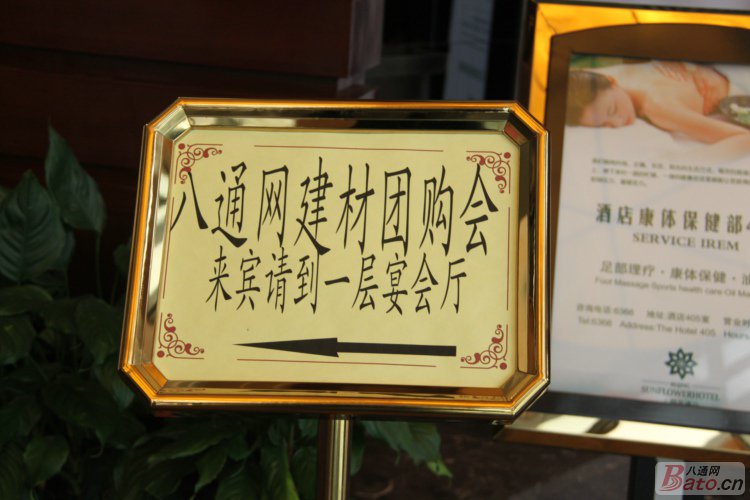 八通网建材团购会
来宾请到一层宴会厅
酒店康体保健部
SERVICE IREM
足部理疗·康体保健·
Foot Massage Sports health care Oil
咨询电话:6366 地址:酒店405室 营业时
Tel:6366 Address:The Hotel 405 Hours
SUNFLOWERHOTEL
八通网
Bato.cn